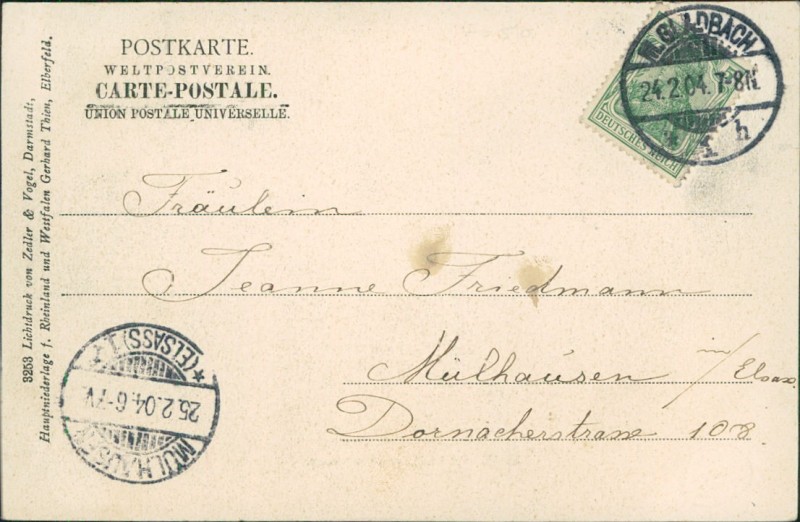 POSTKARTE.
WELTPOSTVEREIN.
CARTE-POSTALE.
UNION POSTALE UNIVERSELLE.
M.GLADBACH
24.2.04. 7-8N.
* 1 h
DEUTSCHES REICH
Fräulein
Jeanne Friedmann
Mülhausen im/Elsass
Dornacherstrasse 108.
3253 Lichtdruck von Zedler & Vogel, Darmstadt,
Hauptniederlage f. Rheinland und Westfalen Gerhard Thien, Elberfeld.
MÜLHAUSEN
25.2.04. 6-7V.
*(ELSASS)1